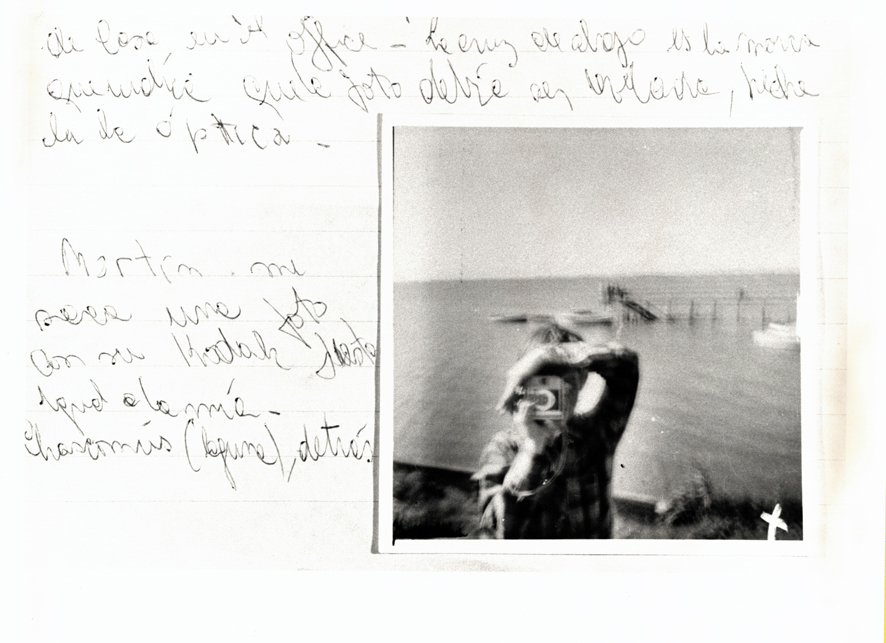 de casa, en el office - La cruz de abajo es la marca
que indica que la foto debía ser velada, hecha
la óptica -
Martín me
saca una foto
con su Kodak Fiesta
igual a la mía -
Chascomús (laguna), detrás